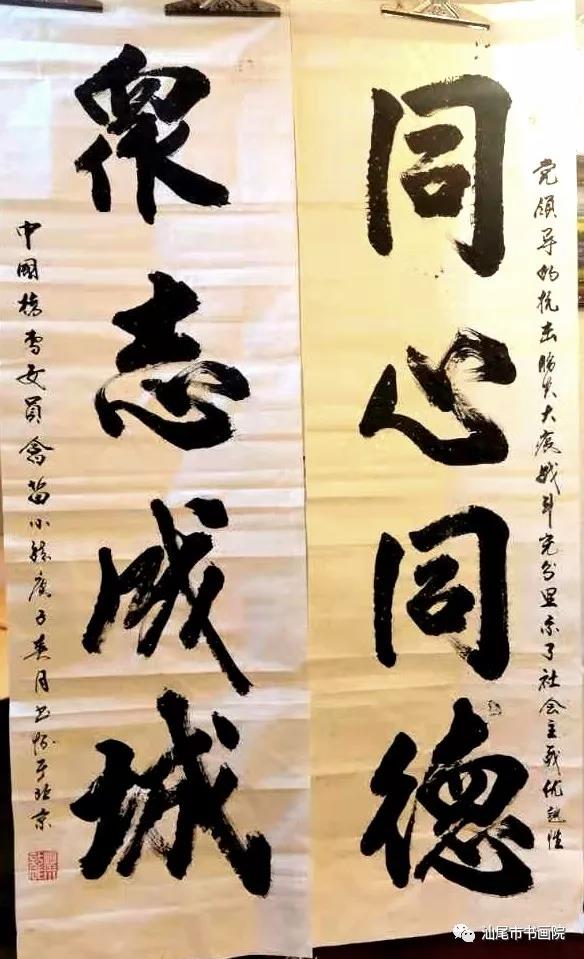 党领导的抗击肺炎大疫战斗充分显示了社会主義优越性
同心同德
眾志成城
中國榜書委員會苗小庚子春月书于北京
汕尾市书画院